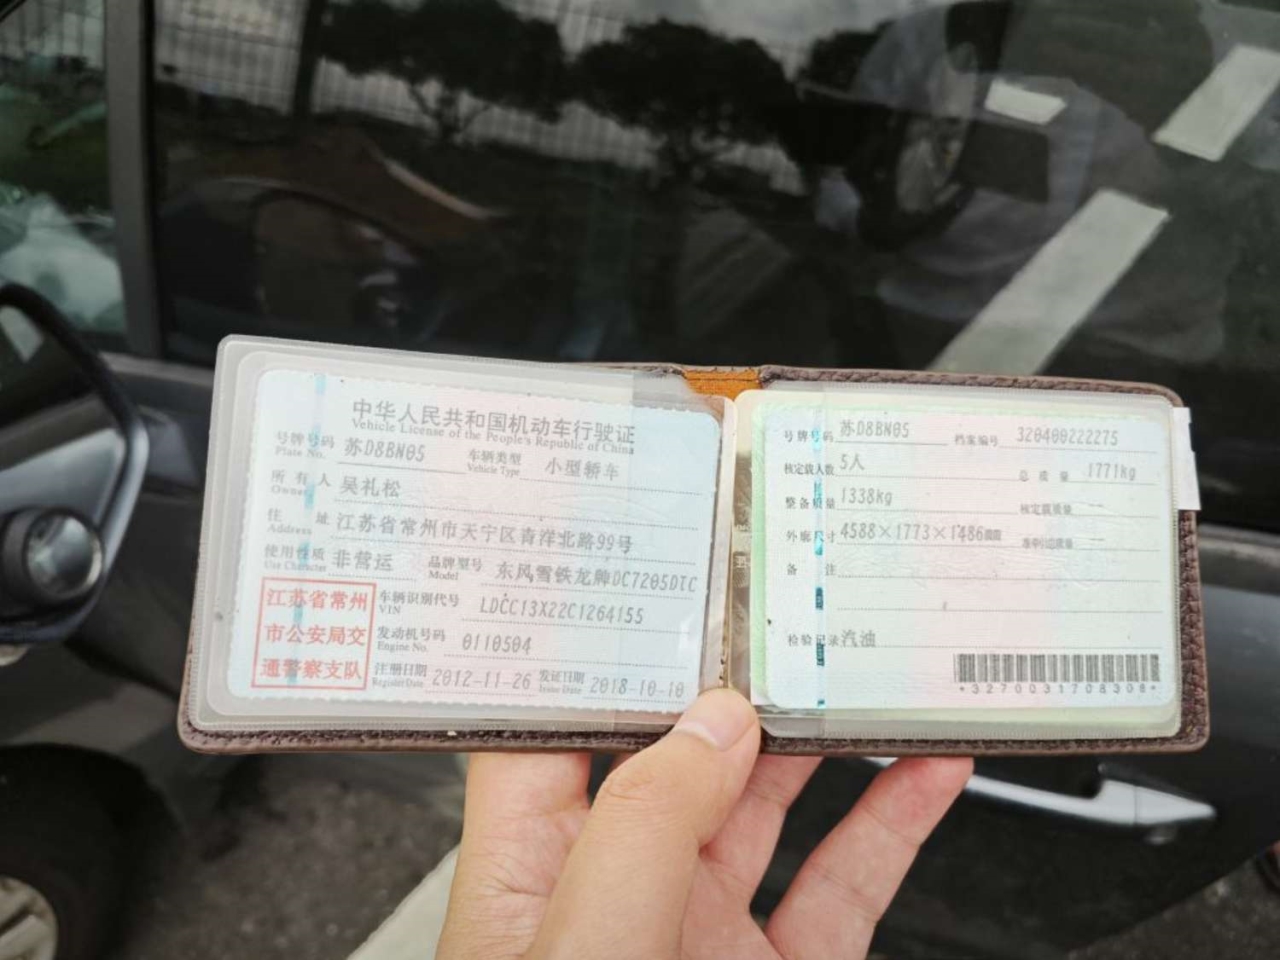 中华人民共和国机动车行驶证
Vehicle License of the People's Republic of China
号牌号码 苏D8BN05 车辆类型 小型轿车
Plate No. Vehicle Type
所有人 吴礼松
Owner
住址 江苏省常州市天宁区青洋北路99号
Address
使用性质 非营运 品牌型号 东风雪铁龙牌DC7205DTC
Use Character Model
江苏省常州
市公安局交
通警察支队
车辆识别代号 LDCC13X22C1264155
VIN
发动机号码 0110504
Engine No.
注册日期 2012-11-26 发证日期 2018-10-10
Register Date Issue Date
号牌号码 苏D8BN05 档案编号 320400222275
核定载人数 5人 总质量 1771kg
整备质量 1338kg 核定载质量 --
外廓尺寸 4588×1773×1486 --
备注
检验记录 汽油
*3270031708308*